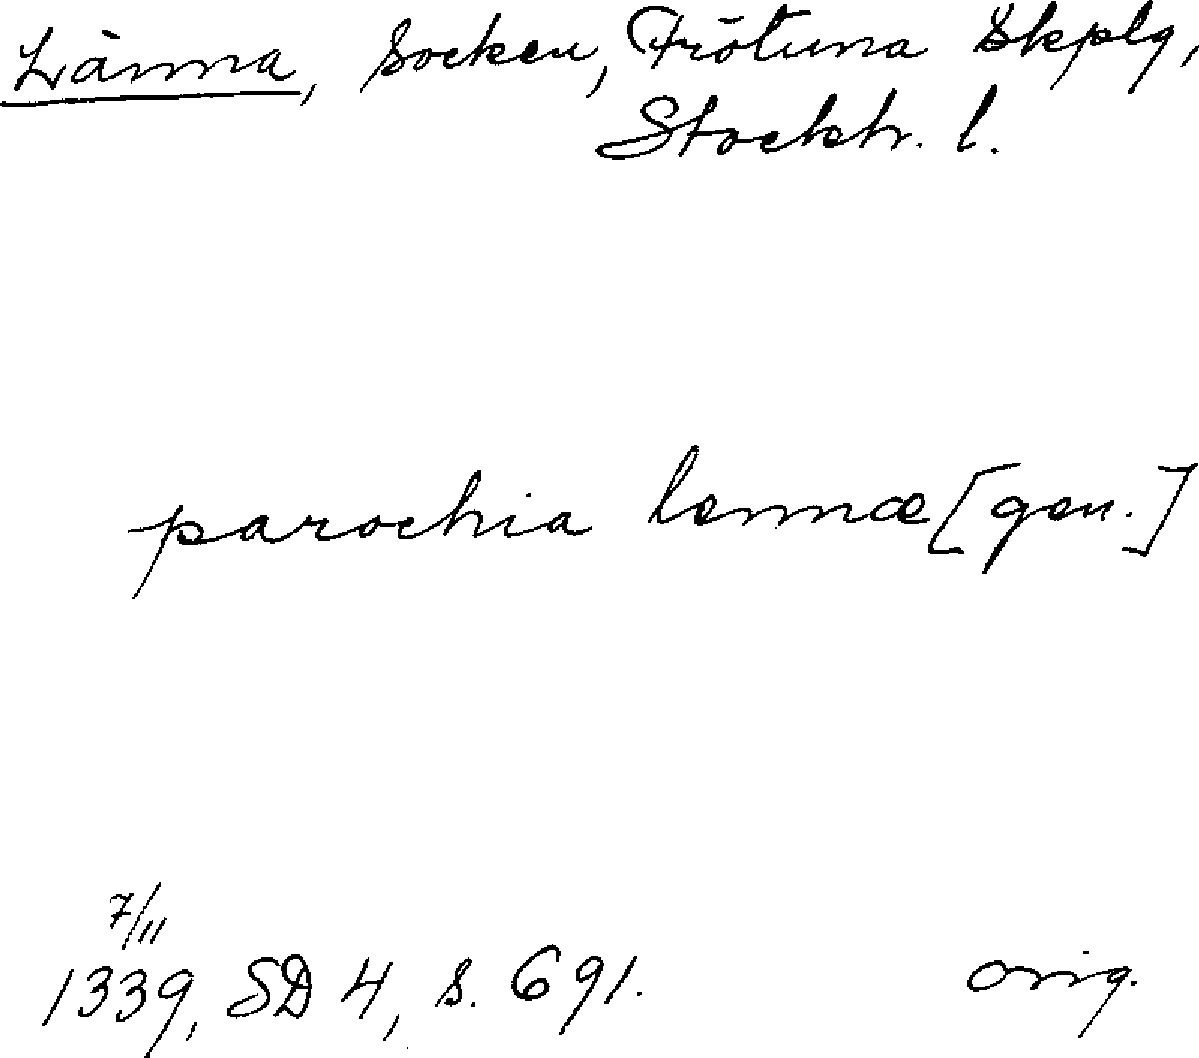 Länna, socken, Frötuna skplg,
Stockh. l.
parochia lennæ [gen.]
7/11
1339, SD 4, s. 691. orig.